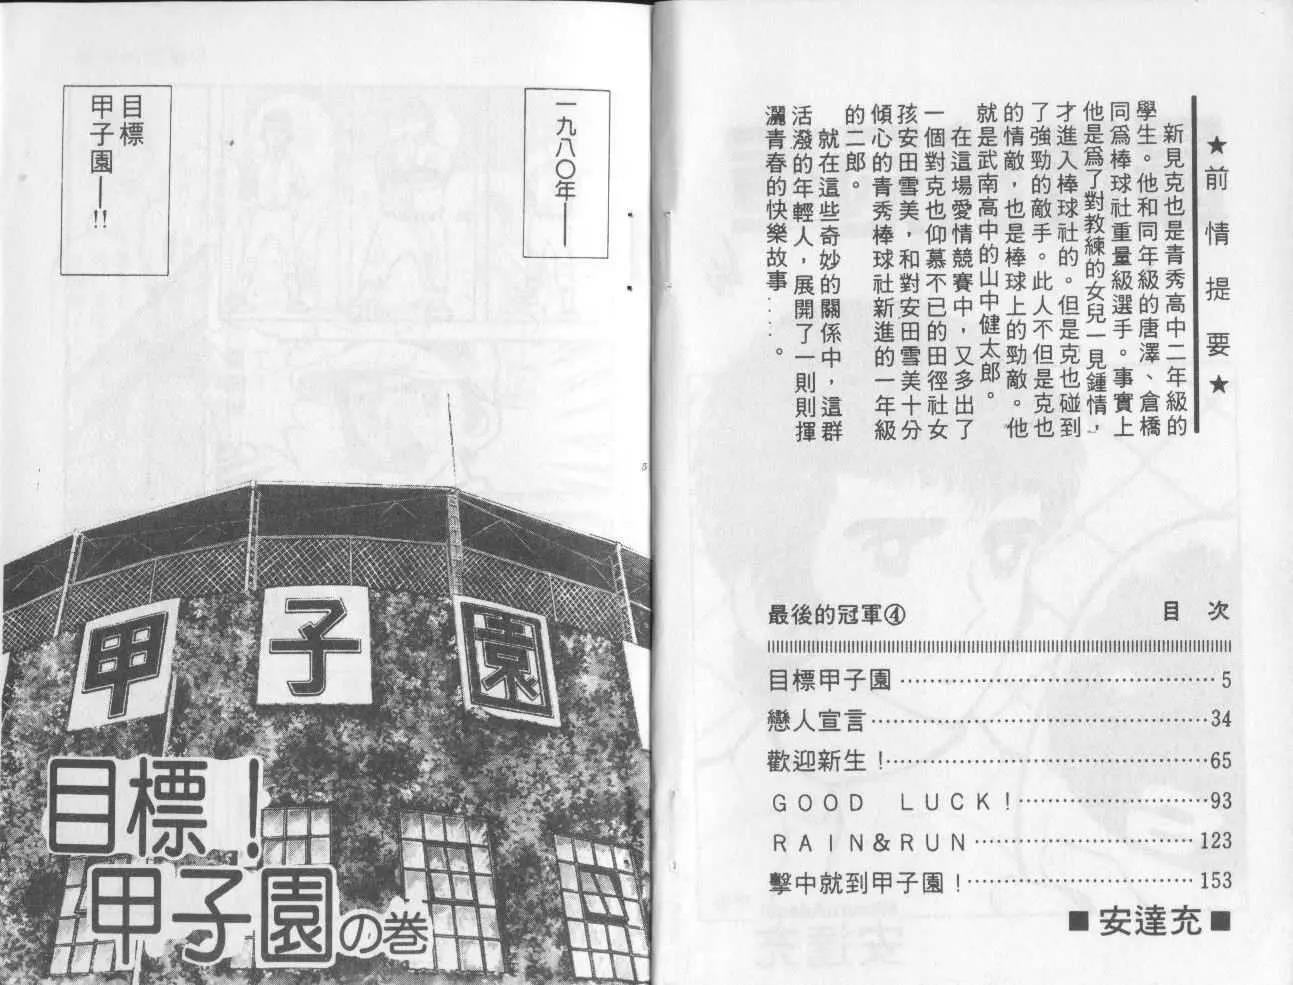 ★前情提要★
新見克也是青秀高中二年級的
學生。他和同年級的唐澤、倉橋
同為棒球社重量級選手。事實上
他是為了對教練的女兒一見鍾情，
才進入棒球社的。但是克也碰到
了強勁的敵手。此人不但是克也
的情敵，也是棒球上的勁敵。他
就是武南高中的山中健太郎。
在這場愛情競賽中，又多出了
一個對克也仰慕不已的田徑社女
孩安田雪美，和對安田雪美十分
傾心的青秀棒球社新進的一年級
的二郎。
就在這些奇妙的關係中，這群
活潑的年輕人，展開了一則則揮
灑青春的快樂故事……。
目 次
最後的冠軍④
目標甲子園……5
戀人宣言……34
歡迎新生！……65
ＧＯＯＤ　ＬＵＣＫ！……93
ＲＡＩＮ＆ＲＵＮ……123
擊中就到甲子園！……153
■安達充■
一九八〇年——
目標
甲子園——!!
甲子園
目標！
甲子園の巻